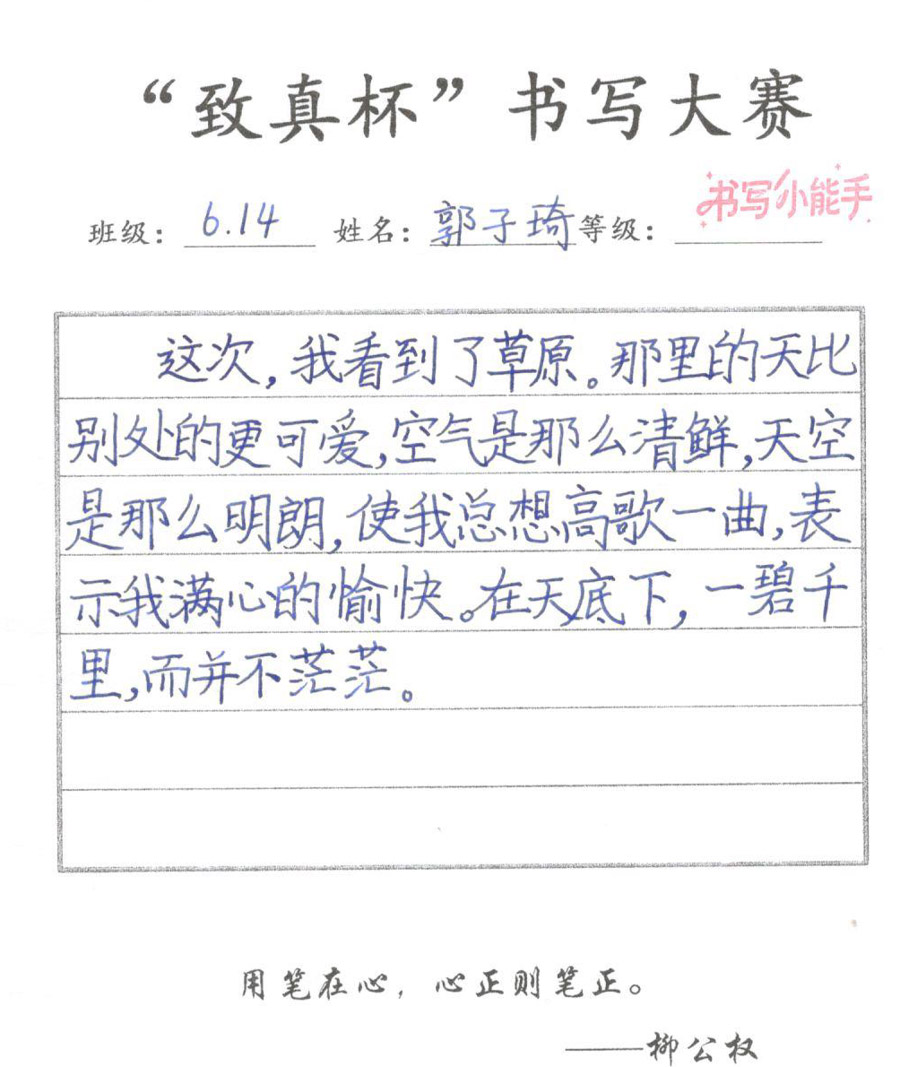 “致真杯”书写大赛
书写小能手
班级：6.14 姓名：郭子琦 等级：
这次，我看到了草原。那里的天比
别处的更可爱，空气是那么清鲜，天空
是那么明朗，使我总想高歌一曲，表
示我满心的愉快。在天底下，一碧千
里，而并不茫茫。
用笔在心，心正则笔正。
——柳公权